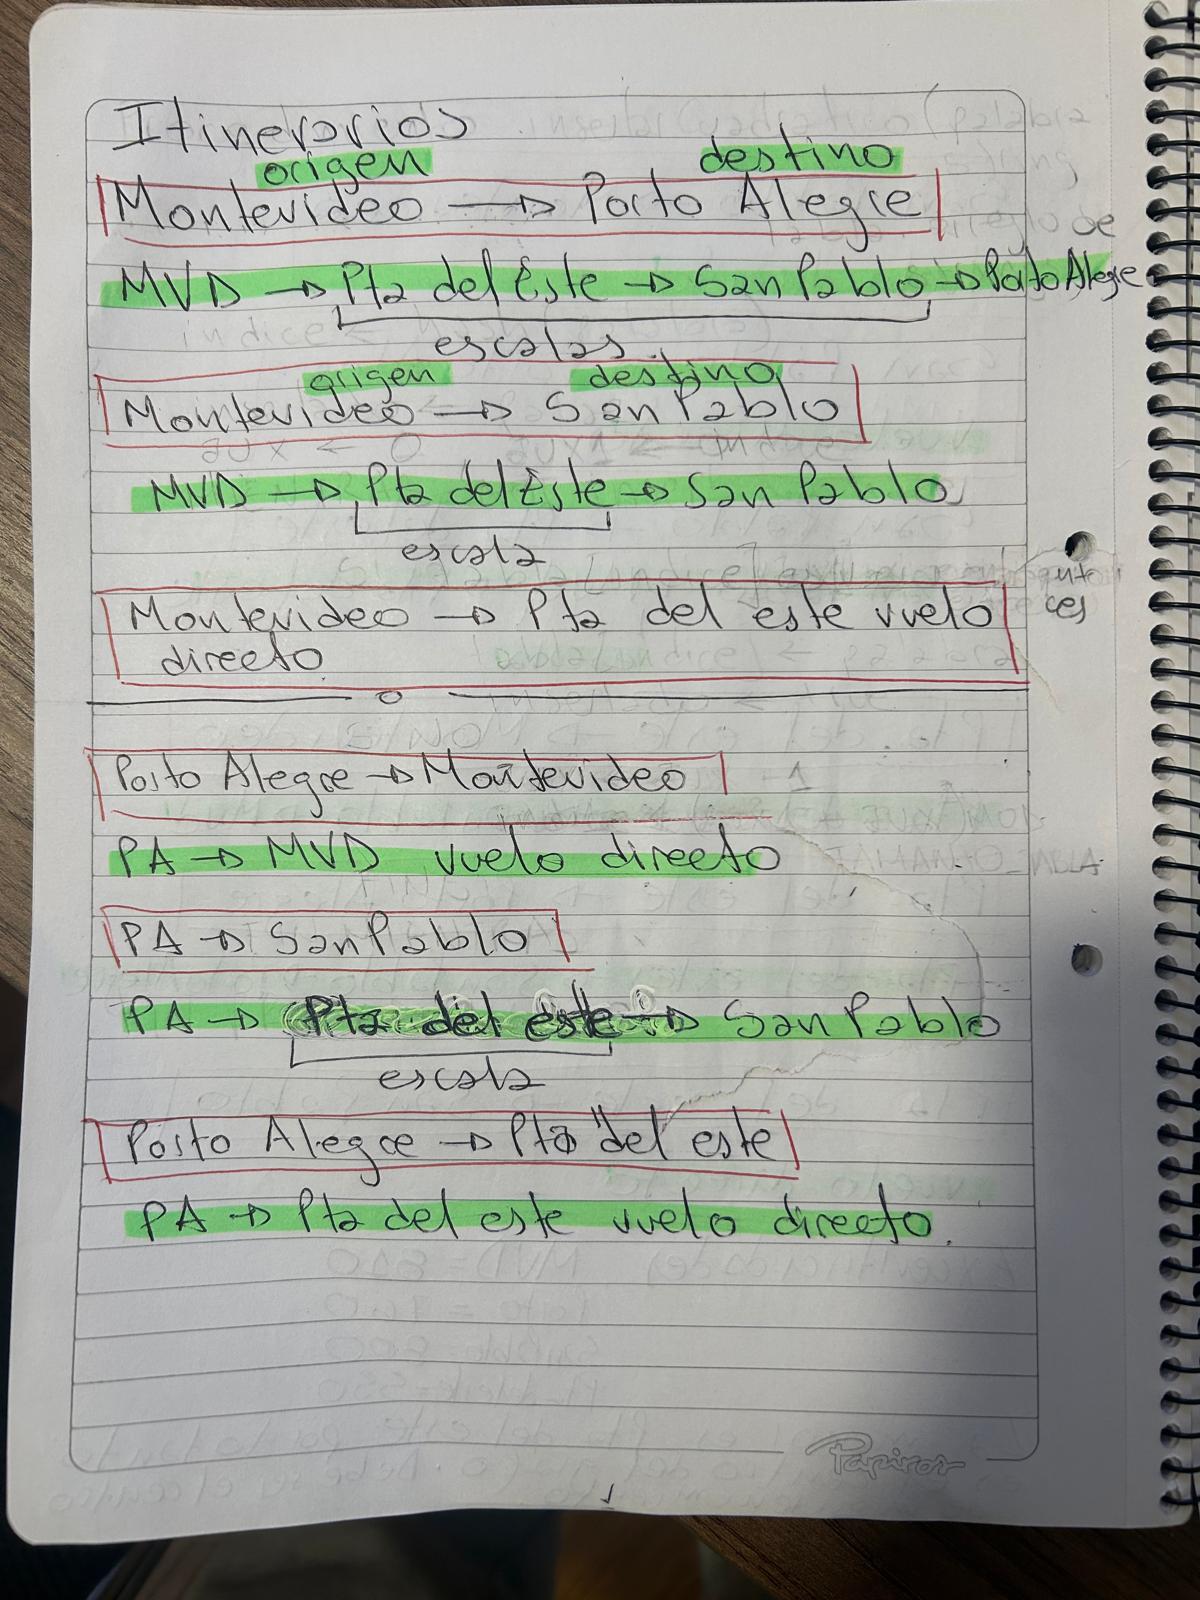 Itinerarios
origen destino
Montevideo → Porto Alegre
MVD → Pta del Este → San Pablo → Porto Alegre
escalas
origen destino
Montevideo → San Pablo
MVD → Pta del Este → San Pablo
escala
Montevideo → Pta del este vuelo
directo
Porto Alegre → Montevideo
PA → MVD vuelo directo
PA → San Pablo
PA → Pta del este → San Pablo
escala
Porto Alegre → Pta del este
PA → Pta del este vuelo directo.
Papiros